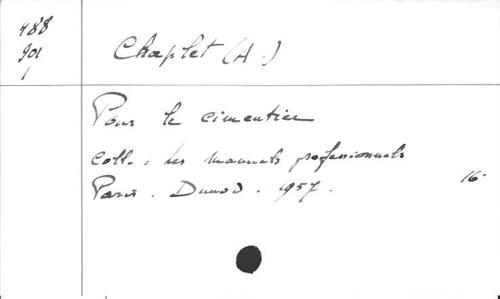 488
901
1
Chaplet (A.)
Pour le cimentier
Coll. : Les manuels professionnels
Paris. Dunod. 1957. 16°